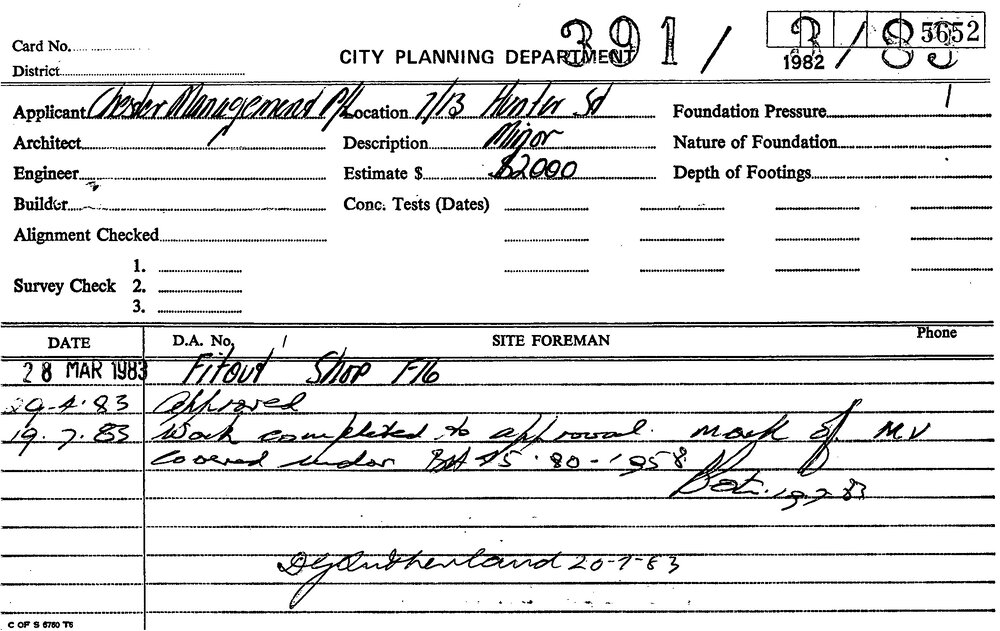 391 / 3 / 83 5652
Card No. CITY PLANNING DEPARTMENT 1982
District
Applicant Chester Management P/L Location 7/13 Hunter St Foundation Pressure
Architect Description Minor Nature of Foundation
Engineer Estimate $ $2000 Depth of Footings
Builder Conc. Tests (Dates)
Alignment Checked
1.
Survey Check 2.
3.
DATE D.A. No. SITE FOREMAN Phone
28 MAR 1983 Fitout Shop F16
29-4-83 approved
19.7.83 Work completed to approval. MV
covered under 45.80-1958
19-7-83
DG Sutherland 20-7-83
C OF S 6760 T6